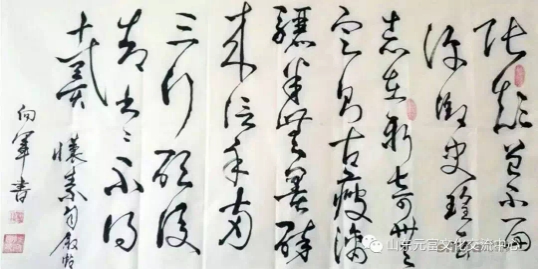 張顛曾不面
許御史瑤云
志在新奇無
定則古瘦漓
驪半無墨醉
来信手兩
三行醒後
却書〻不得
懷素自叙帖
向軍書
山东元富文化交流中心